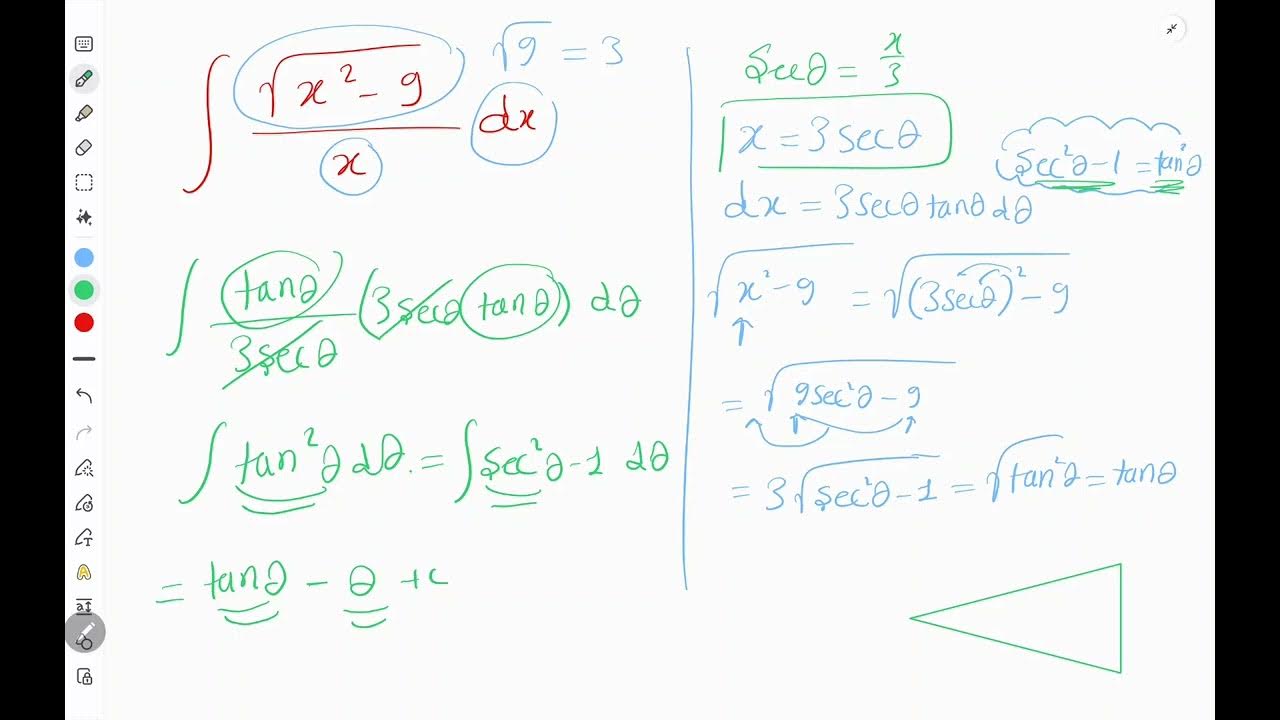 ∫ √(x² - 9) / x dx
√9 = 3
∫ tanθ / 3secθ (3secθ tanθ) dθ
∫ tan²θ dθ. = ∫ sec²θ - 1 dθ
= tanθ - θ + c
secθ = x/3
x = 3secθ
sec²θ - 1 = tan²θ
dx = 3secθ tanθ dθ
√(x² - 9) = √((3secθ)² - 9)
= √(9sec²θ - 9)
= 3√(sec²θ - 1) = √(tan²θ) = tanθ